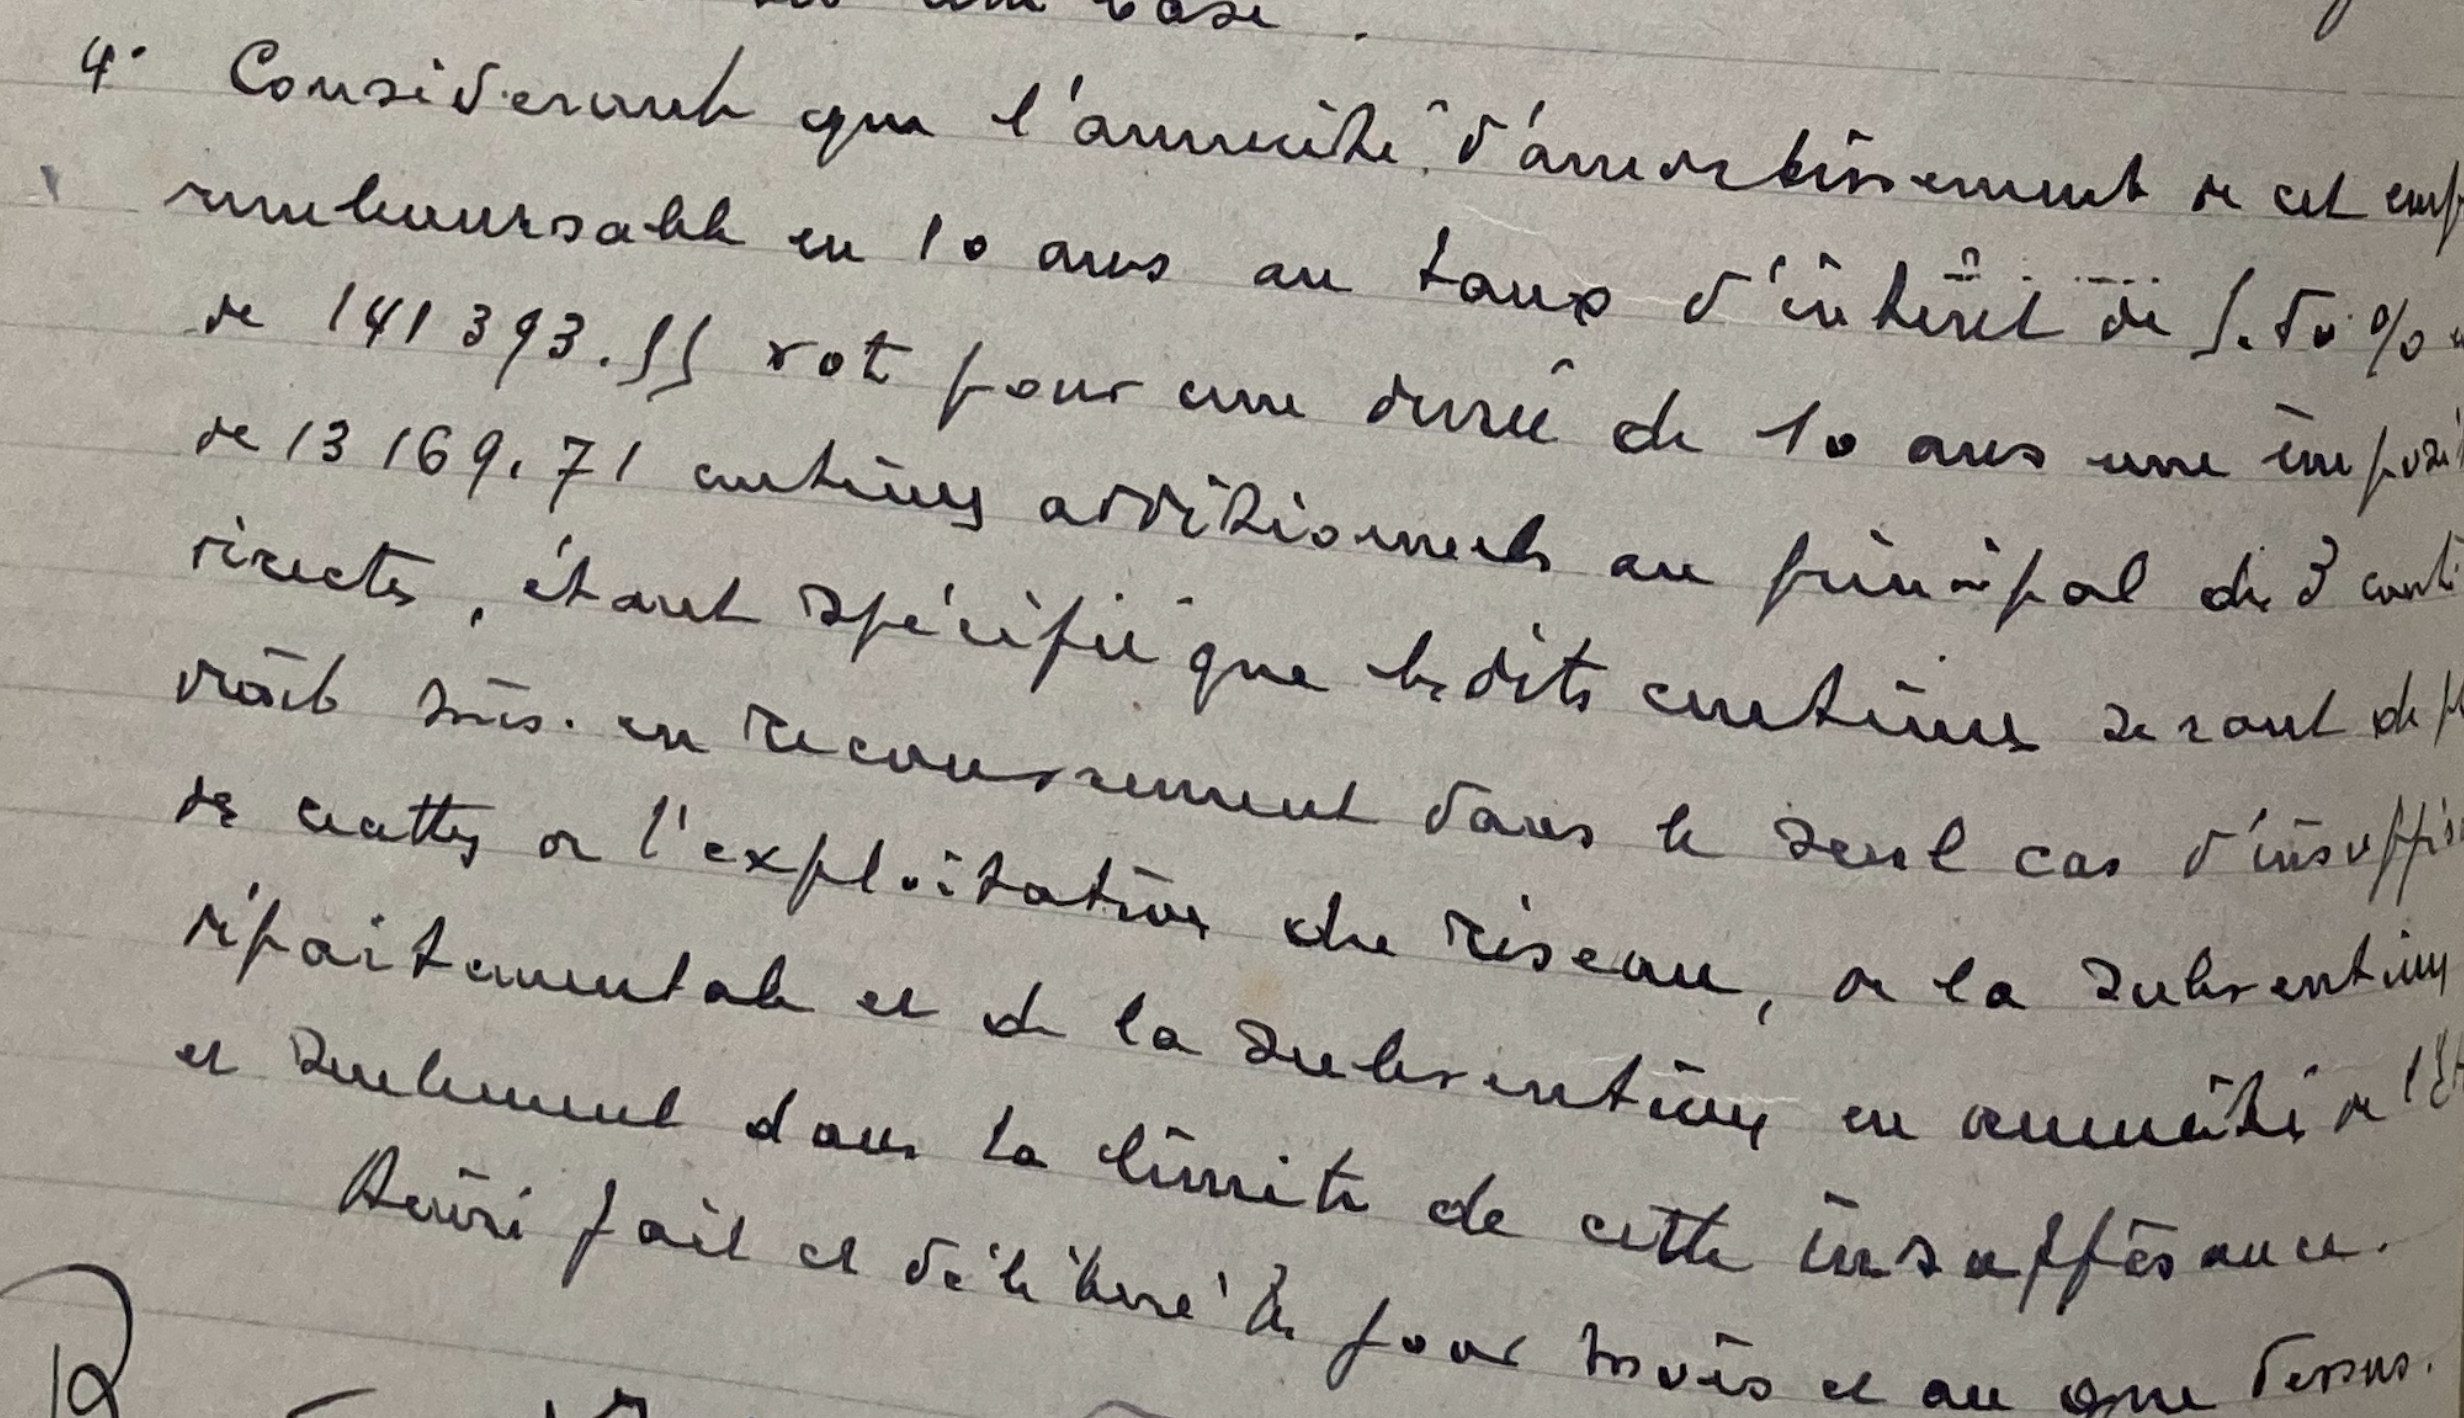 sur une base.
4° Considerant que l'annuité d'amortissement de cet emp
remboursable en 10 ans au taux d'intérêt de 5.50 %
de 141 393.55 vote pour une durée de 10 ans une imposi
de 13 169.71 centimes additionnels au principal des 3 conti
directes, étant spécifié que lesdits centimes seront de p
droit mis en recouvrement dans le seul cas d'insuffis
de recettes de l'exploitation du réseau, de la subvention
départementale et de la subvention en annuité de l'Et
et seulement dans la limite de cette insuffisance.
Ainsi fait et délibéré les jour mois et an que dessus.